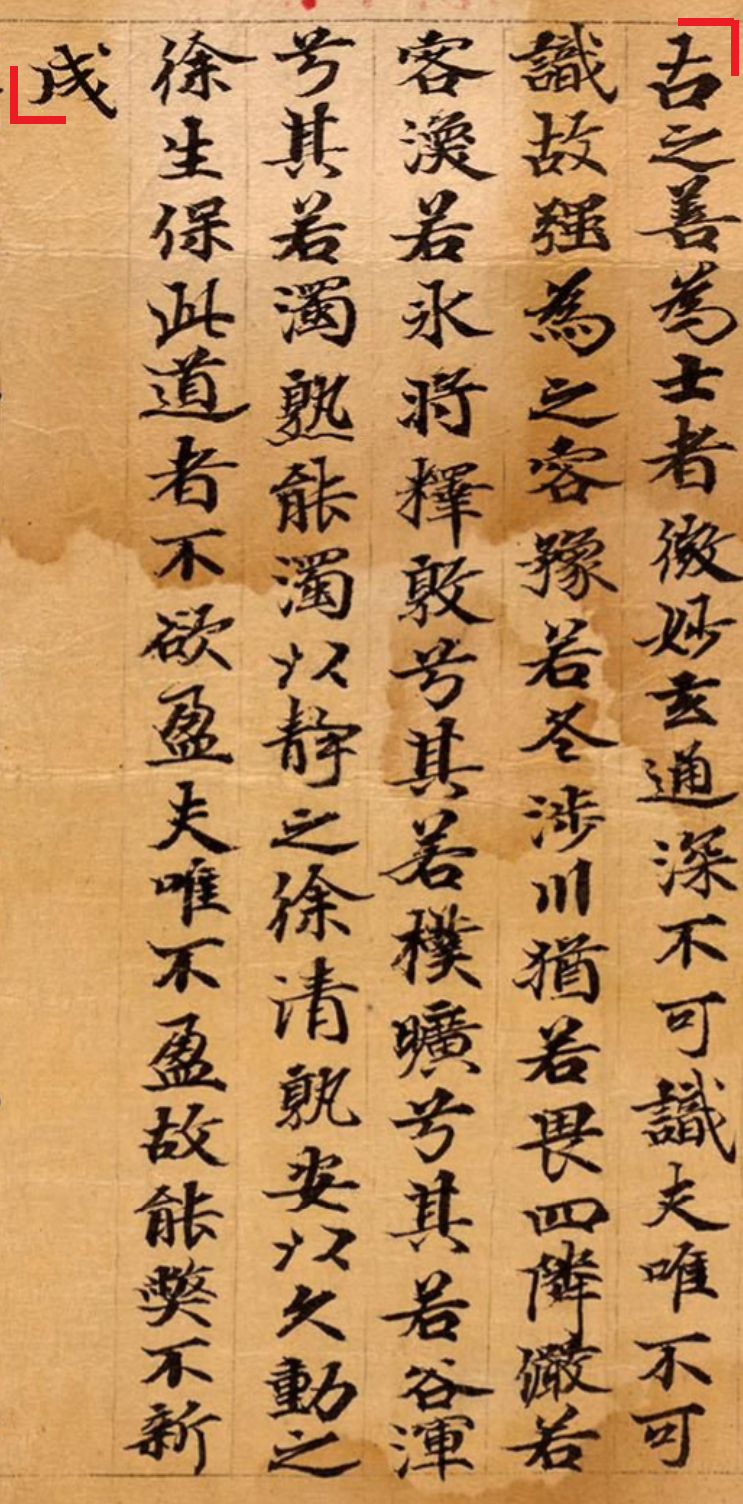 古之善為士者微妙玄通深不可識夫唯不可
識故强為之容豫若冬涉川猶若畏四隣儼若
客渙若氷將釋敦兮其若樸曠兮其若谷渾
兮其若濁熟能濁以静之徐清孰安以久動之
徐生保此道者不欲盈夫唯不盈故能弊不新
成